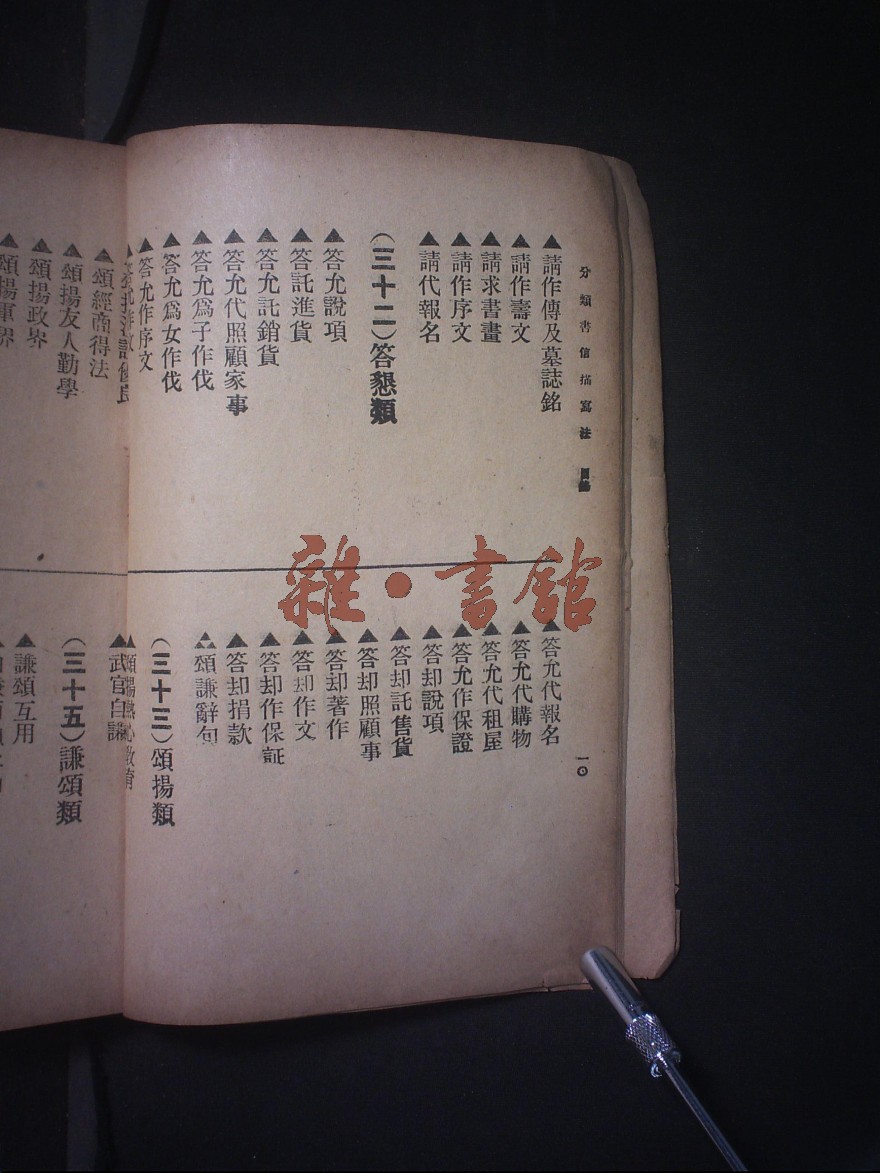 分類書信描寫法 目錄
▲請作傳及墓誌銘
▲請作壽文
▲請求書畫
▲請作序文
▲請代報名
(三十二)答懇類
▲答允說項
▲答託進貨
▲答允託銷貨
▲答允代照顧家事
▲答允爲子作伐
▲答允爲女作伐
▲答允作序文
▲頌經商得法
▲頌揚友人勤學
▲頌揚政界
▲頌揚軍界
▲答允代報名
▲答允代購物
▲答允代租屋
▲答允作保證
▲答却說項
▲答却託售貨
▲答却照顧事
▲答却著作
▲答却作文
▲答却作保証
▲答却捐款
頌謙辭句
(三十三)頌揚類
▲頌揚熱心教育
▲武官自謙
(三十五)謙頌類
▲謙頌互用
一〇
雜·書館